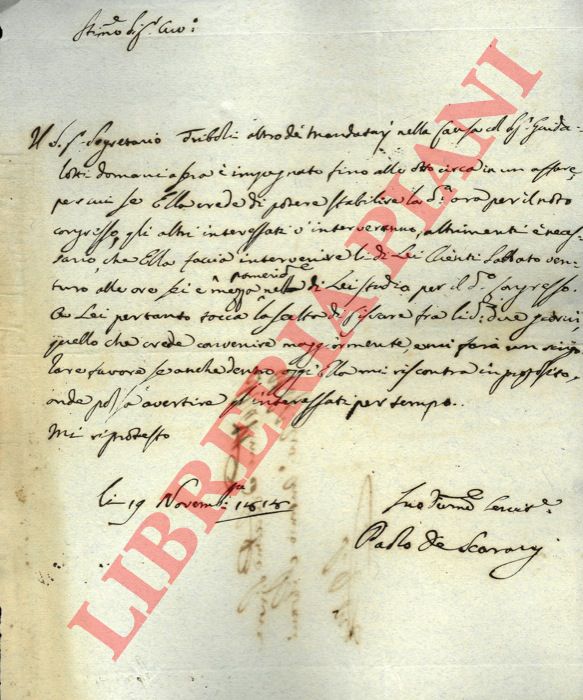 Stim.e Sig.r Avv.o
Il S.r Segretario Triboli altro de' Mandatarj nella Causa col Sig.r Guida
lotti domani a sera è impegnato fino alle otto circa in un affare
per cui se Ella crede di potere stabilire la d.a ora per il noto
congresso, gli altri interessati v'interverranno, altrimenti è neces
sario, che Ella faccia intervenire li di Lei Clienti Sabbato ven
turo alle ore sei e mezza pomerid.e nello di Lei Studio per il d.o Congresso.
A Lei pertanto tocca la scelta di fissare fra li d.i due giorni
quello che crede convenire maggiormente, e mi farà un singo
lare favore se anche dentro oggi Ella mi riscontra in proposito,
onde possa avertire gl'interessati per tempo.
Mi riprotesto
li 19 Novemb. 1818
Suo Dev.mo Servit.e
Paolo De Scarani
LIBRERIA PIANI